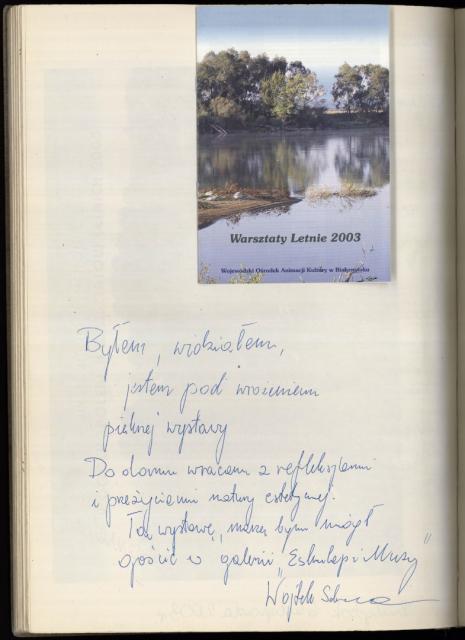 Warsztaty Letnie 2003
Wojewódzki Ośrodek Animacji Kultury w Białymstoku
Byłem, widziałem,
jestem pod wrażeniem
pięknej wystawy
Do domu wracam z refleksjami
i przeżyciami natury estetycznej.
Tą wystawę, marzę bym mógł
gościć w galerii „Eskulap i Muzy”
Wojtek